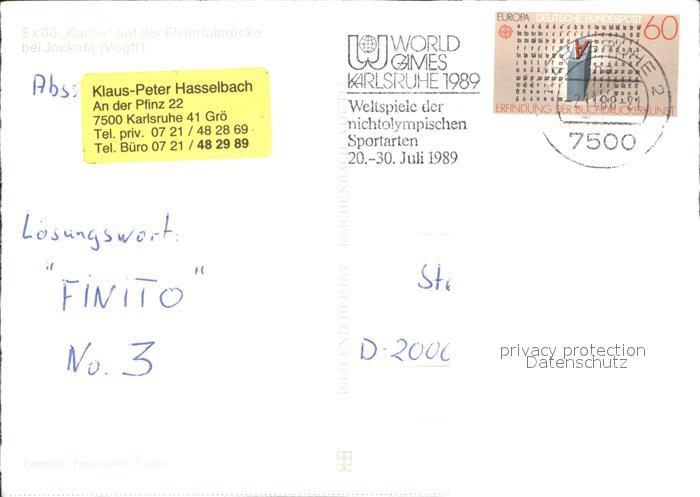 Ex 66 „Karlex" auf der Elstertalbrücke
bei Jocketa (Vogtl.)
Abs:
Klaus-Peter Hasselbach
An der Pfinz 22
7500 Karlsruhe 41 Grö
Tel. priv. 07 21 / 48 28 69
Tel. Büro 07 21 / 48 29 89
WORLD
GAMES
KARLSRUHE 1989
Weltspiele der
nichtolympischen
Sportarten
20.-30. Juli 1989
EUROPA DEUTSCHE BUNDESPOST 60
A
ERFINDUNG DER BUCHDRUCKERKUNST
KARLSRUHE 2
7500
Lösungswort:
"FINITO"
No. 3
BILD UND HEIMAT REICHENBACH
D-2000
privacy protection
Datenschutz